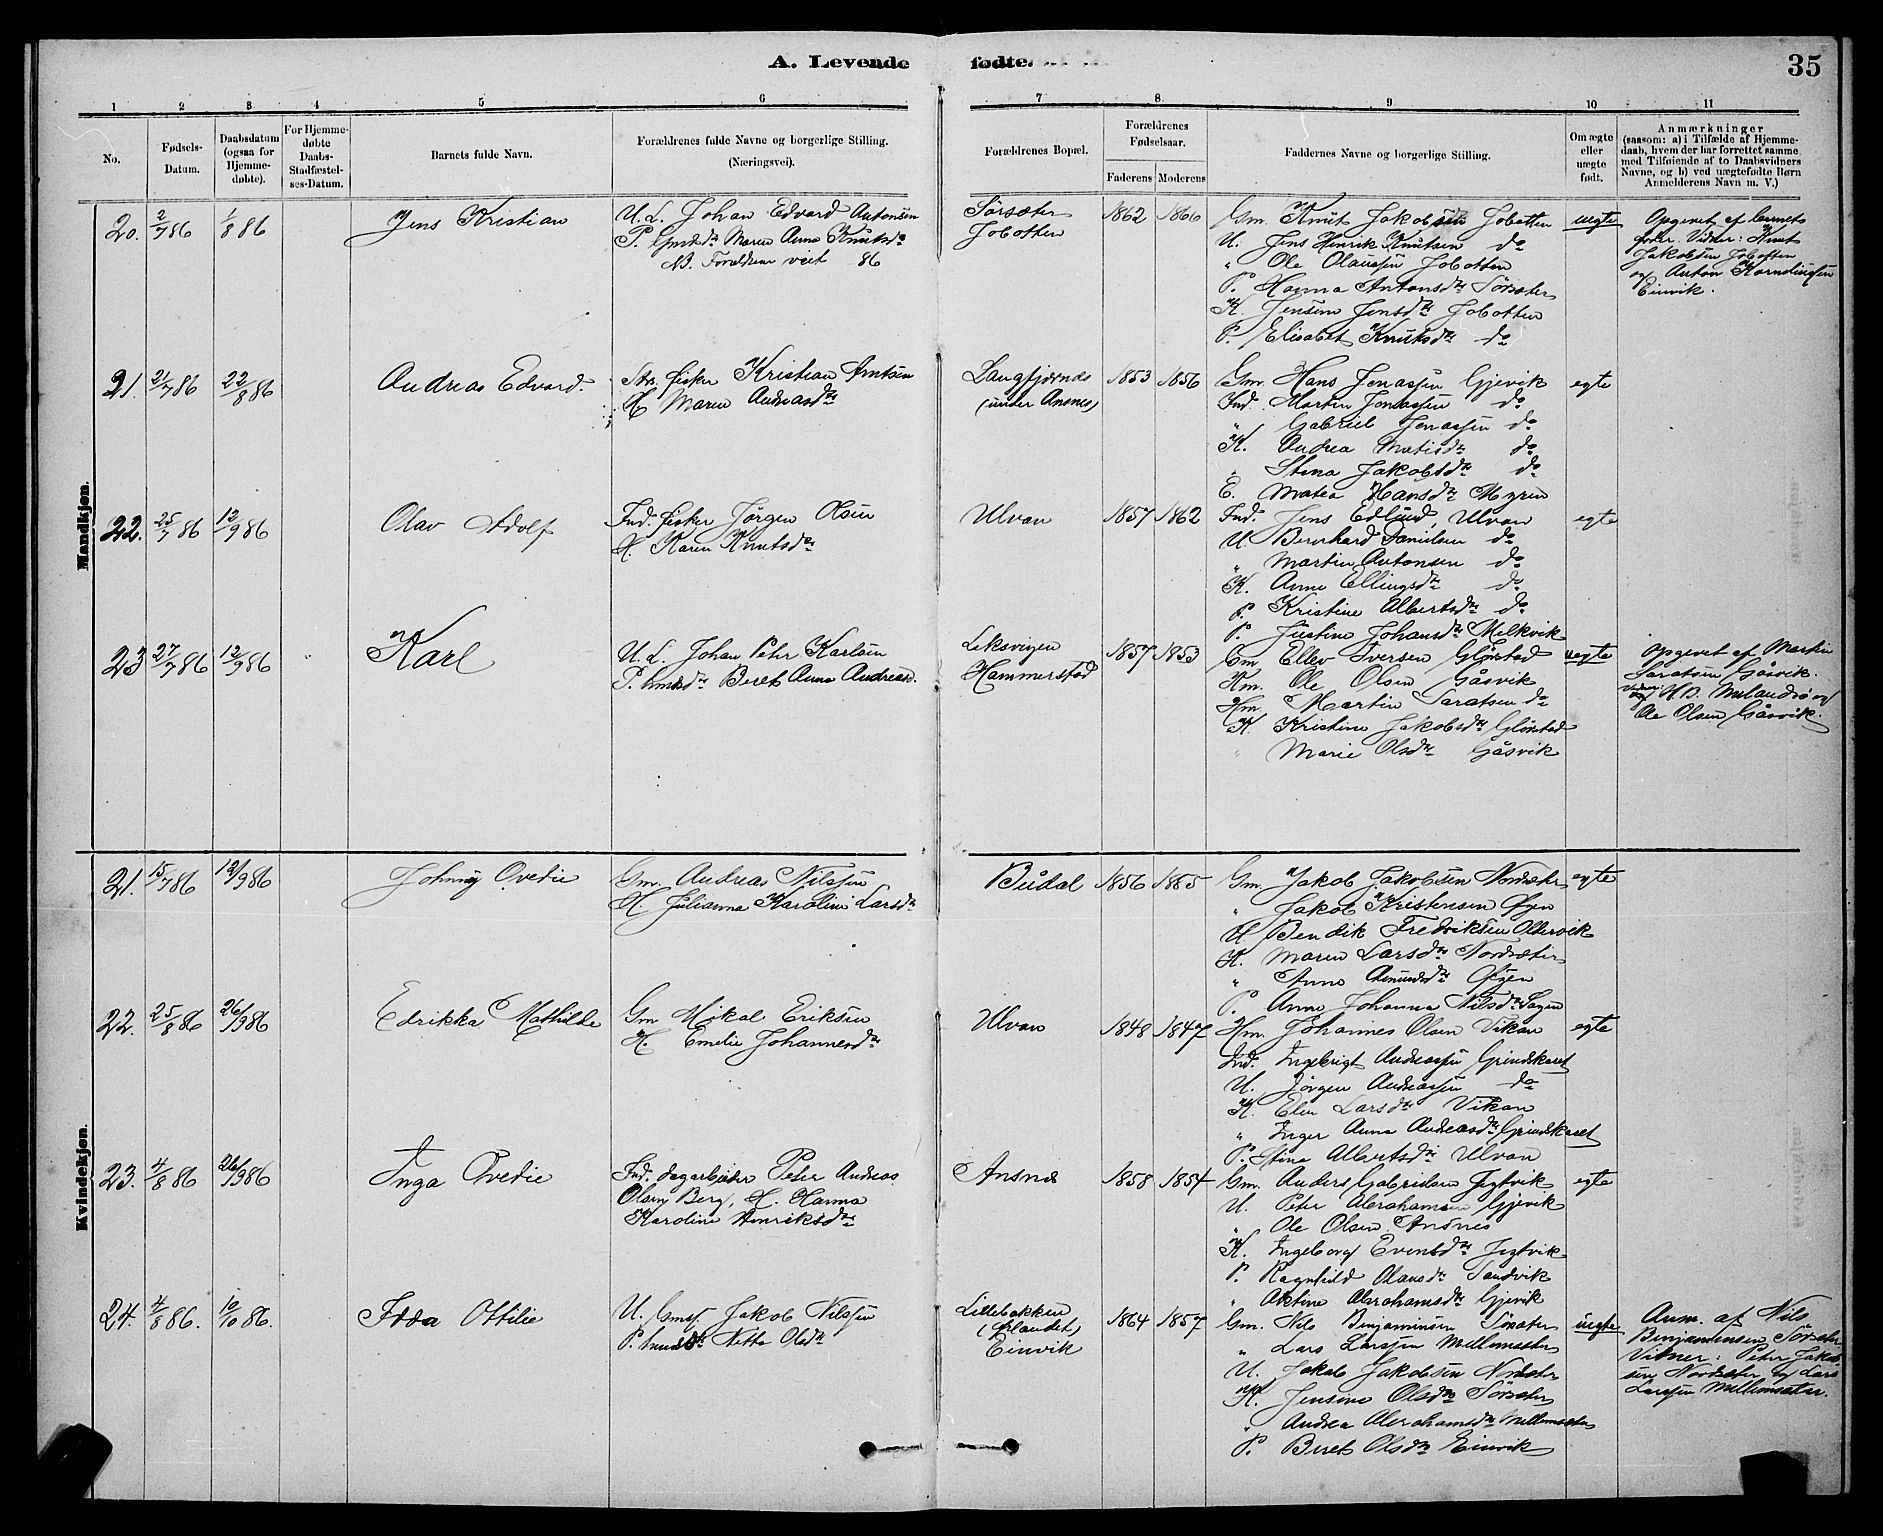 A. Levende fødte.
35
1 2 3 4 5 6 7 8. 9 10 11
No.
Fødsels-Datum.
Daabsdatum (ogsaa for Hjemme-døbte).
For Hjemme-døbte Daabs-Stadfæstel-ses-Datum.
Barnets fulde Navn.
Forældrenes fulde Navne og borgerlige Stilling.
(Næringsvei).
Forældrenes Bopæl.
Forældrenes Fødselsaar.
Faderens Moderens
Faddernes Navne og borgerlige Stilling.
Om ægte eller uægte født.
Anmærkninger
(saasom: a) i Tilfælde af Hjemme-
daab, hvem der har forrettet samme,
med Tilføiende af to Daabsvidners
Navne, og b) ved uægtefødte Børn
Anmelderens Navn m. V.)
Mandkjøn.
20. 2/7 86 1/8 86 Jens Kristian
U. L. Johan Edvard Antonsen
P. Gmds dr Maren Anna Knutsdr
NB. Forældrene viet 86
Sørsæter
Jobotten
1862 1866
Gm. Knut Jakobsen Jobotten
U. Jens Henrik Knutsen do
" Ole Olaussen Jobotten
P. Hanna Antonsdr Sørsæter
K. Jensine Jensdr Jobotten
P. Elisabet Knutsdr do
uegte
Opgivet af barnets
fader. Vidner: Knut
Jakobsen Jobotten
og Anton Korneliussen
Einvik.
21. 21/7 86 22/8 86 Andreas Edvard.
Str. fisker Kristian Arntsen
H. Maren Andreasdr
Langfjørnes
(under Ansnes)
1853 1856
Gm. Hans Jonassen Gjevik
Ind. Martin Jonassen do
" Gabriel Jonassen do
K. Andrea Matisdr do
" Stina Jakobsdr do
E. Matea Hansdr Myren
egte
22. 25/7 86 12/9 86 Olav Adolf
Ind. fisker Jørgen Olsen
H. Karen Knutsdr
Ulvan
1857 1862
Ind. Jens Edlund, Ulvan
U. Bernhard Danielsen do
" Martin Antonsen do
K. Anne Ellingsdr do
P. Kristine Albertsdr do
P. Justine Johansdr Melkvik
egte
23 27/7 86 12/9 86 Karl
U. L. Johan Peter Karlsen
P. hmds dr Beret Anna Andreasd.
Leksvigen
Hammerstad
1857 1853
Gm Ellev Iversen Glørstad
Hm. Ole Olsen Gåsvik
Hm. Martin Saratsen do
K. Kristine Jakobsdr Glørstad
" Marie Olsdr Gåsvik
uegte
Opgivet af Martin
Saratsen Gåsvik.
Vidner:
Ole Olsen Gåsvik.
Kvindekjøn.
21. 15/7 86 12/9 86 Johnny Ovedie
Gm. Andreas Nilssen
H. Julianna Karoline Larsdr
Búdal
1856 1865
Gm. Jakob Jakobsen Nordsæter
" Jakob Kristensen Øyen
U Bendik Fredriksen Oldervik
K. Maren Larsdr Nordsæter
" Anne Amundsdr Øyen
P. Anne Johanna Nilsdr Sagen
egte
22. 25/8 86 26/9 86 Edrikka Mathilde
Gm Mikal Eriksen
H. Emelie Johannesdr
Ulvan
1848 1847
Hm. Johannes Olsen Vikan
Ind. Ingebrigt Andreassen Grindskaret
U. Jørgen Andreassen do
K. Elen Larsdr Vikan
" Inger Anna Andreasdr Grindskaret
P. Stina Albertsdr Ulvan
egte
23. 4/8 86 26/9 86 Inga Ovedie
Ind. dagarbeider Peter Andreas
Olsen Berg, H. Hanna
Karoline Henriksdr
Ansnes
1858 1854
Gm. Anders Gabrielsen Jegtvik
U. Peter Abrahamsen Gjevik
" Ole Olsen Ansnes
K. Ingeborg Evensdr Jegtvik
P. Ragnhild Olausdr Sandvik
" Oktine Abrahamsdr Gjevik
egte
24. 4/8 86. 10/10 86. Ida Ottilie
U. Gmss. Jakob Nilssen
P. hmds dr Netta Olsdr
Lillebakken
Einvik
1864 1857
Gm. Nils Benjaminsen Sørsæter
" Lars Larssen Mellemsæter
U. Jakob Jakobsen Nordsæter
K. Jensine Olsdr Sørsæter
" Andrea Abrahamsdr Mellemsæter
P. Beret Olsdr Einvik
uegte
Anm. af Nils
Benjaminsen Sørsæter
Vitner: Peter Jakob-
sen Nordsæter og Lars
Larssen Mellemsæter.